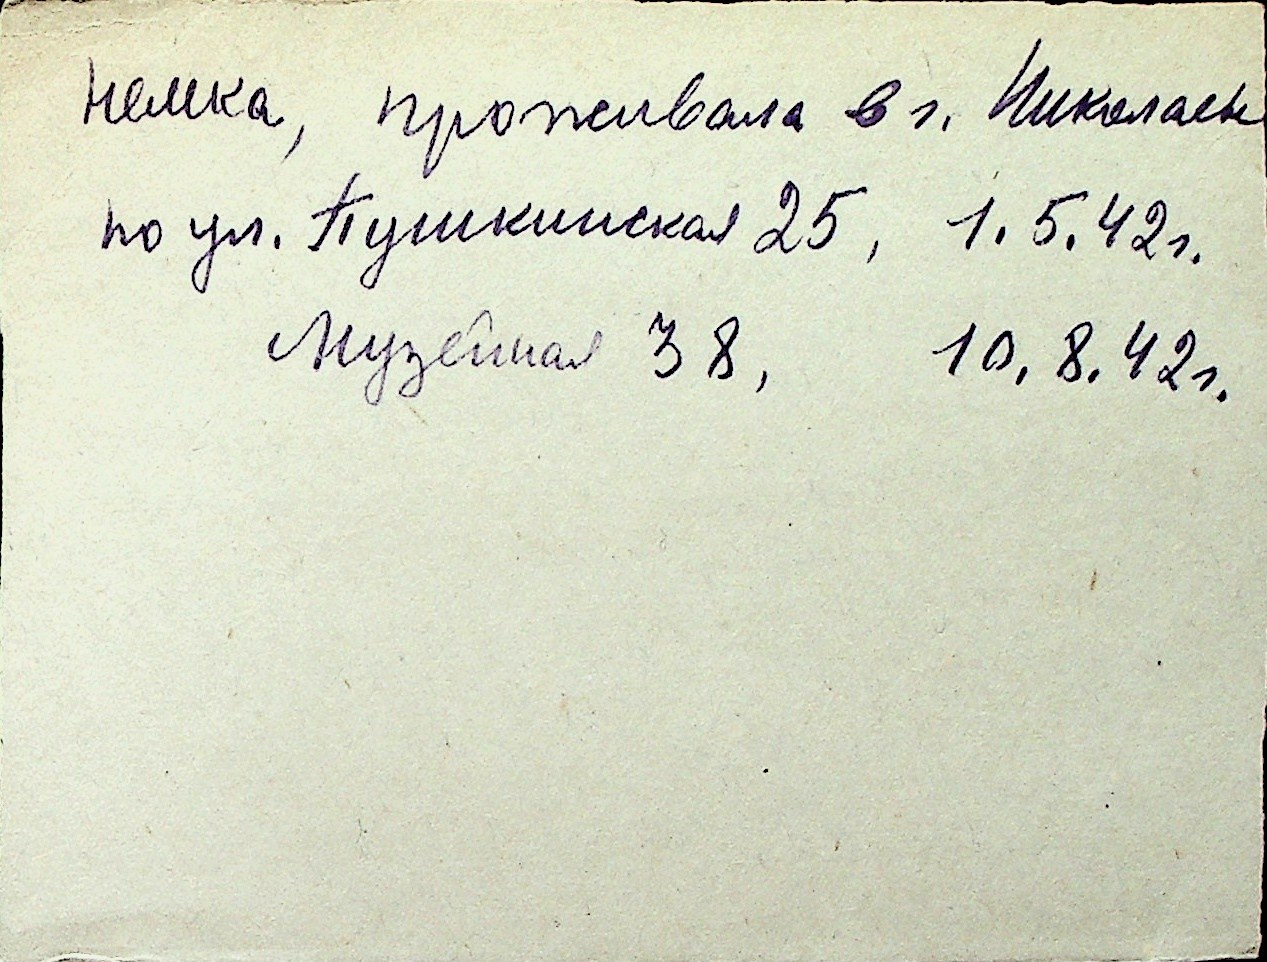 немка, проживала в г. Николаев
по ул. Пушкинская 25, 1.5.42г.
Музейная 38, 10.8.42г.